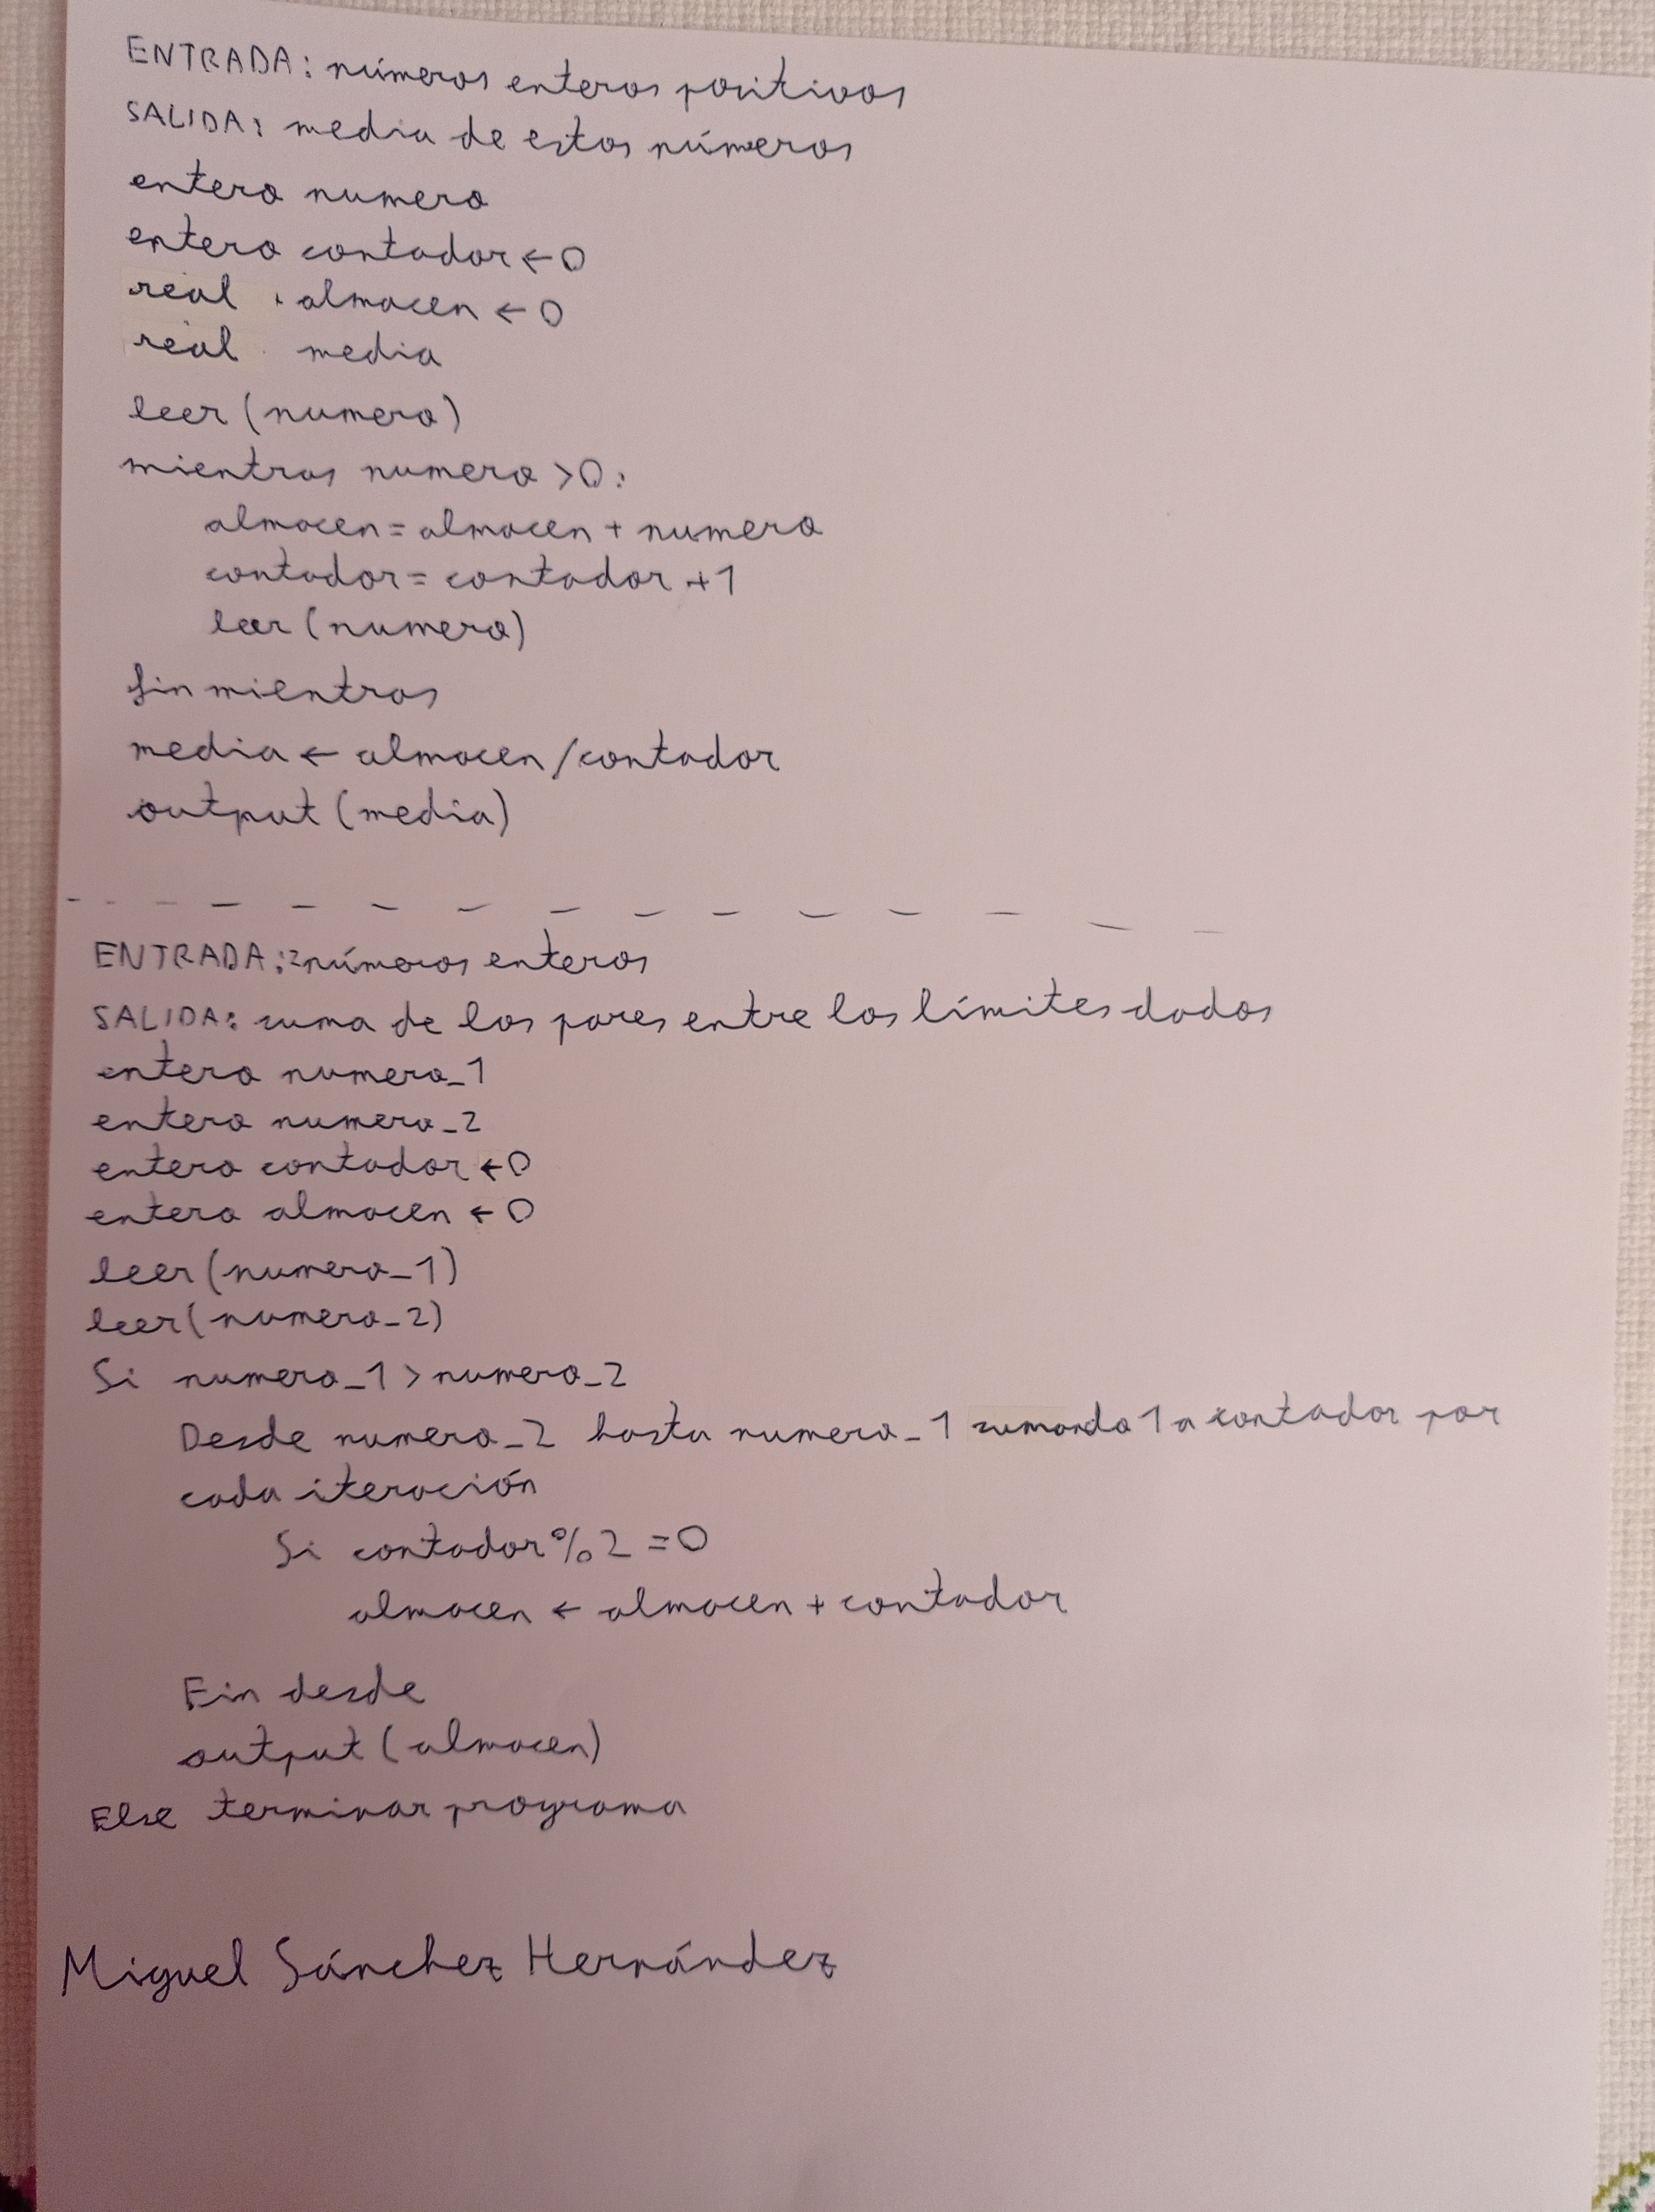 ENTRADA: números enteros positivos
SALIDA: media de estos números
entero numero
entero contador ← 0
real almacen ← 0
real media
leer (numero)
mientras numero > 0:
almacen = almacen + numero
contador = contador + 1
leer (numero)
fin mientras
media ← almacen / contador
output (media)
ENTRADA: 2 números enteros
SALIDA: suma de los pares entre los límites dados
entero numero_1
entero numero_2
entero contador ← 0
entero almacen ← 0
leer (numero_1)
leer (numero_2)
Si numero_1 > numero_2
Desde numero_2 hasta numero_1 sumando 1 a contador por
cada iteración
Si contador % 2 = 0
almacen ← almacen + contador
Fin desde
output (almacen)
Else terminar programa
Miguel Sánchez Hernández